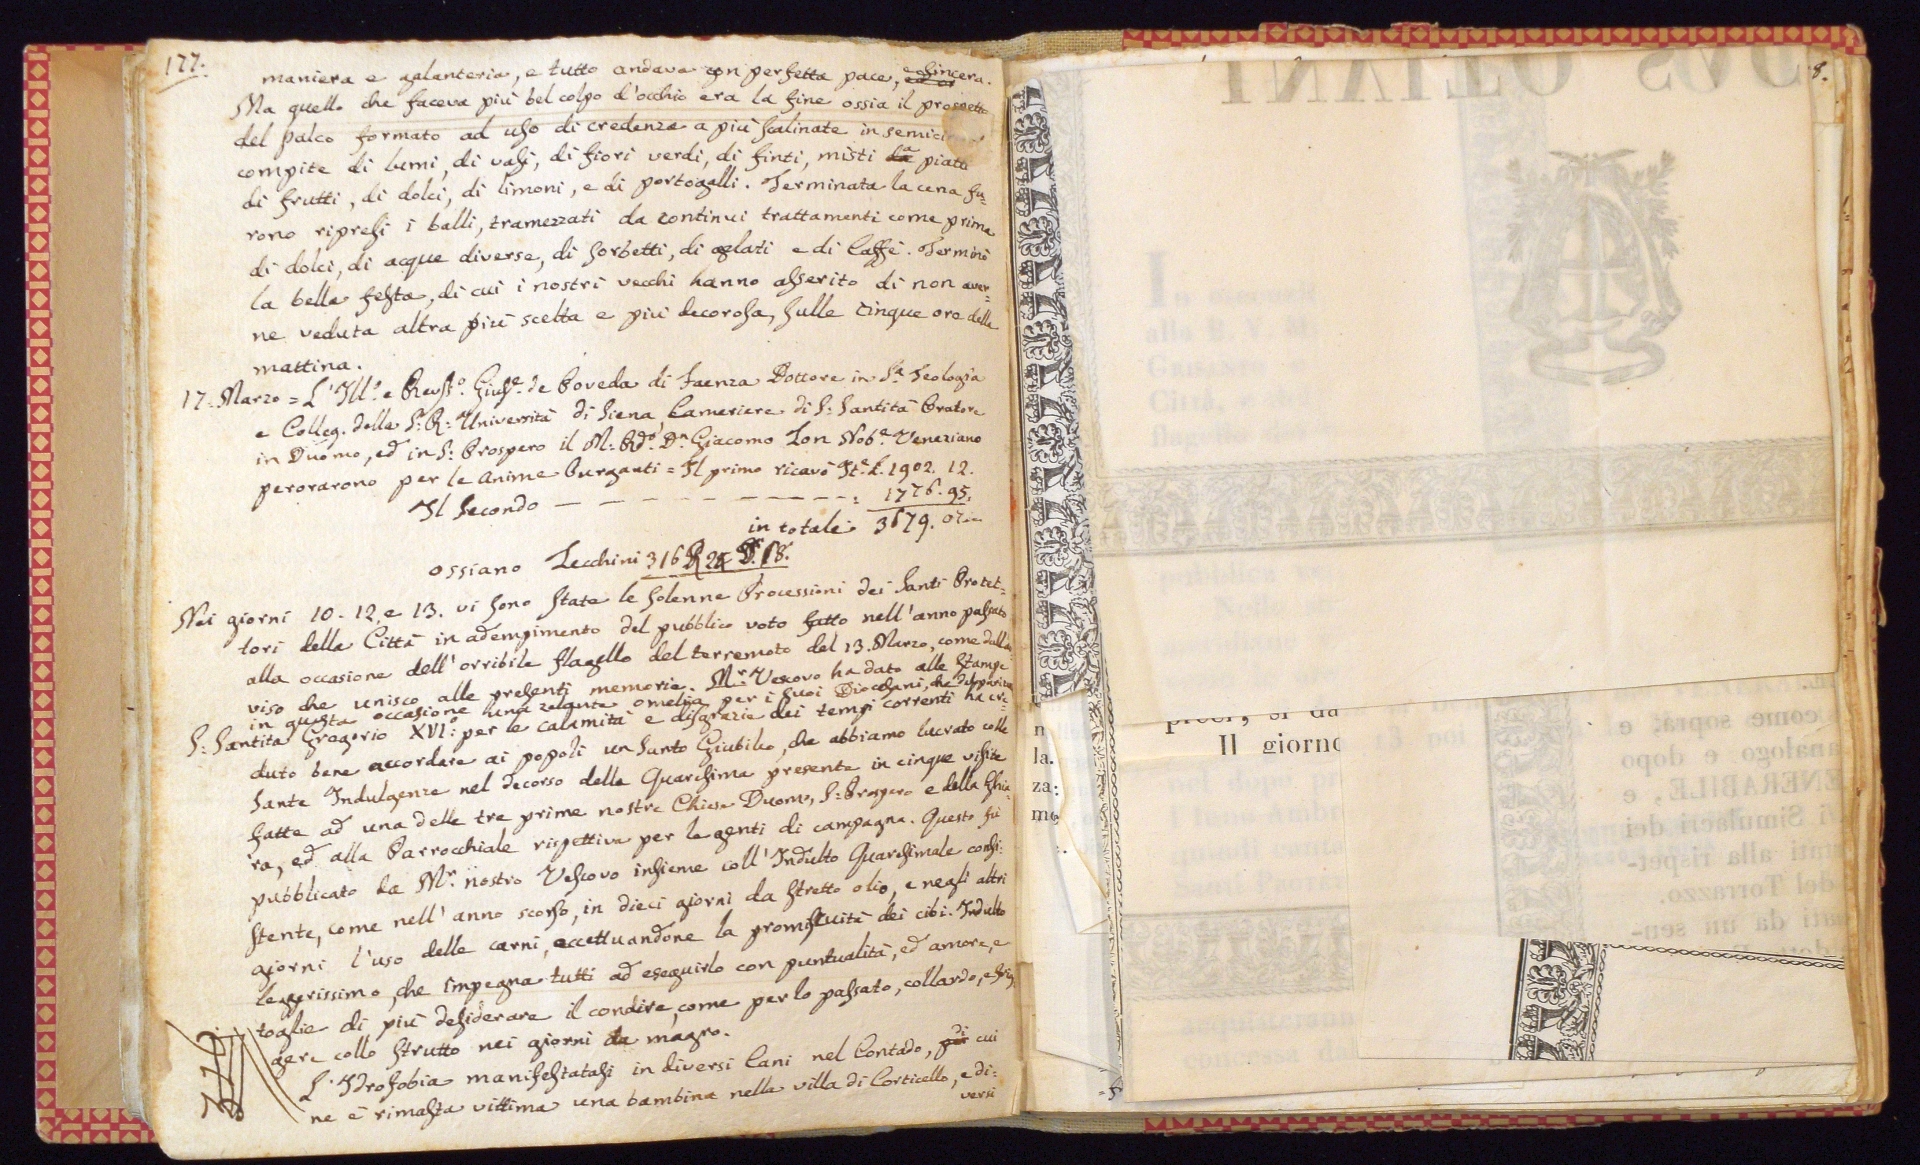 177.
maniera e galanteria, e tutto andava con perfetta pace, e sincera.
Ma quello che faceva più bel colpo d'occhio era la fine ossia il prospetto
del palco formato ad uso di credenza a più scalinate in semici
compite di lumi, di vasi, di fiori verdi, di finti, misti da piatti
di frutti, di dolci, di limoni, e di portogalli. Terminata la cena fu=
rono ripresi i balli, tramezzati da continui trattamenti come prima
di dolci, di acque diverse, di sorbetti, di gelati e di Caffè. Terminò
la bella festa, di cui i nostri vecchi hanno asserito di non aver=
ne veduta altra più scelta e più decorosa, sulle cinque ore della
mattina.
17. Marzo = L'Ill.o e Revss.o Gius.e de Poveda di Faenza Dottore in S.a Teologia
e Colleg. della S: R: Università di Siena, Cameriere di S: Santità Oratore
in Duomo, ed in S: Prospero il M: Rdo. Dn. Giacomo Zon Nob.e Veneziano
perorarono per le Anime Purganti = Il primo ricavò It.e L. 1902. 12.
Il secondo — — — — — — — : 1776. 95.
in totale: 3679. 07
ossiano Zecchini 316
Nei giorni 10. 12, e 13. vi sono state le solenne Processioni dei Santi Protet=
tori della Città in adempimento del pubblico voto fatto nell'anno passato
alla occasione dell'orribile flagello del terremoto del 13. Marzo, come dall'av=
viso che unisco alle presenti memorie. Mr. Vescovo ha dato alle stampe
in questa occasione una zelante omelia per i suoi Diocesani, che
S: Santità Gregorio XVI.o per le calamità e disgrazie dei tempi correnti ha cre=
duto bene accordare ai popoli un Santo Giubileo, che abbiamo lucrato colle
Sante Indulgenze nel decorso della Quaresima presente in cinque visite
fatte ad una delle tre prime nostre Chiese Duomo, S: Prospero e della Ghia=
ra, ed alla Parrocchiale rispettiva per le genti di campagna. Questo fù
pubblicato da Mr. nostro Vescovo insieme coll'Indulto Quaresimale consi=
stente, come nell'anno scorso, in dieci giorni da stretto olio, e negli altri
giorni l'uso delle carni, eccettuandone la promiscuità dei cibi. Indulto
leggerissimo, che impegna tutti ad eseguirlo con puntualità, ed amore, e
toglie di più desiderare il condire, come per lo passato, col lardo, e frig=
gere collo strutto nei giorni da magro.
L'Idrofobia manifestatasi in diversi Cani nel Contado, di cui
ne è rimasta vittima una bambina nella villa di Corticella, e di=
versi
8.
n
la.
za:
me
Il giorno